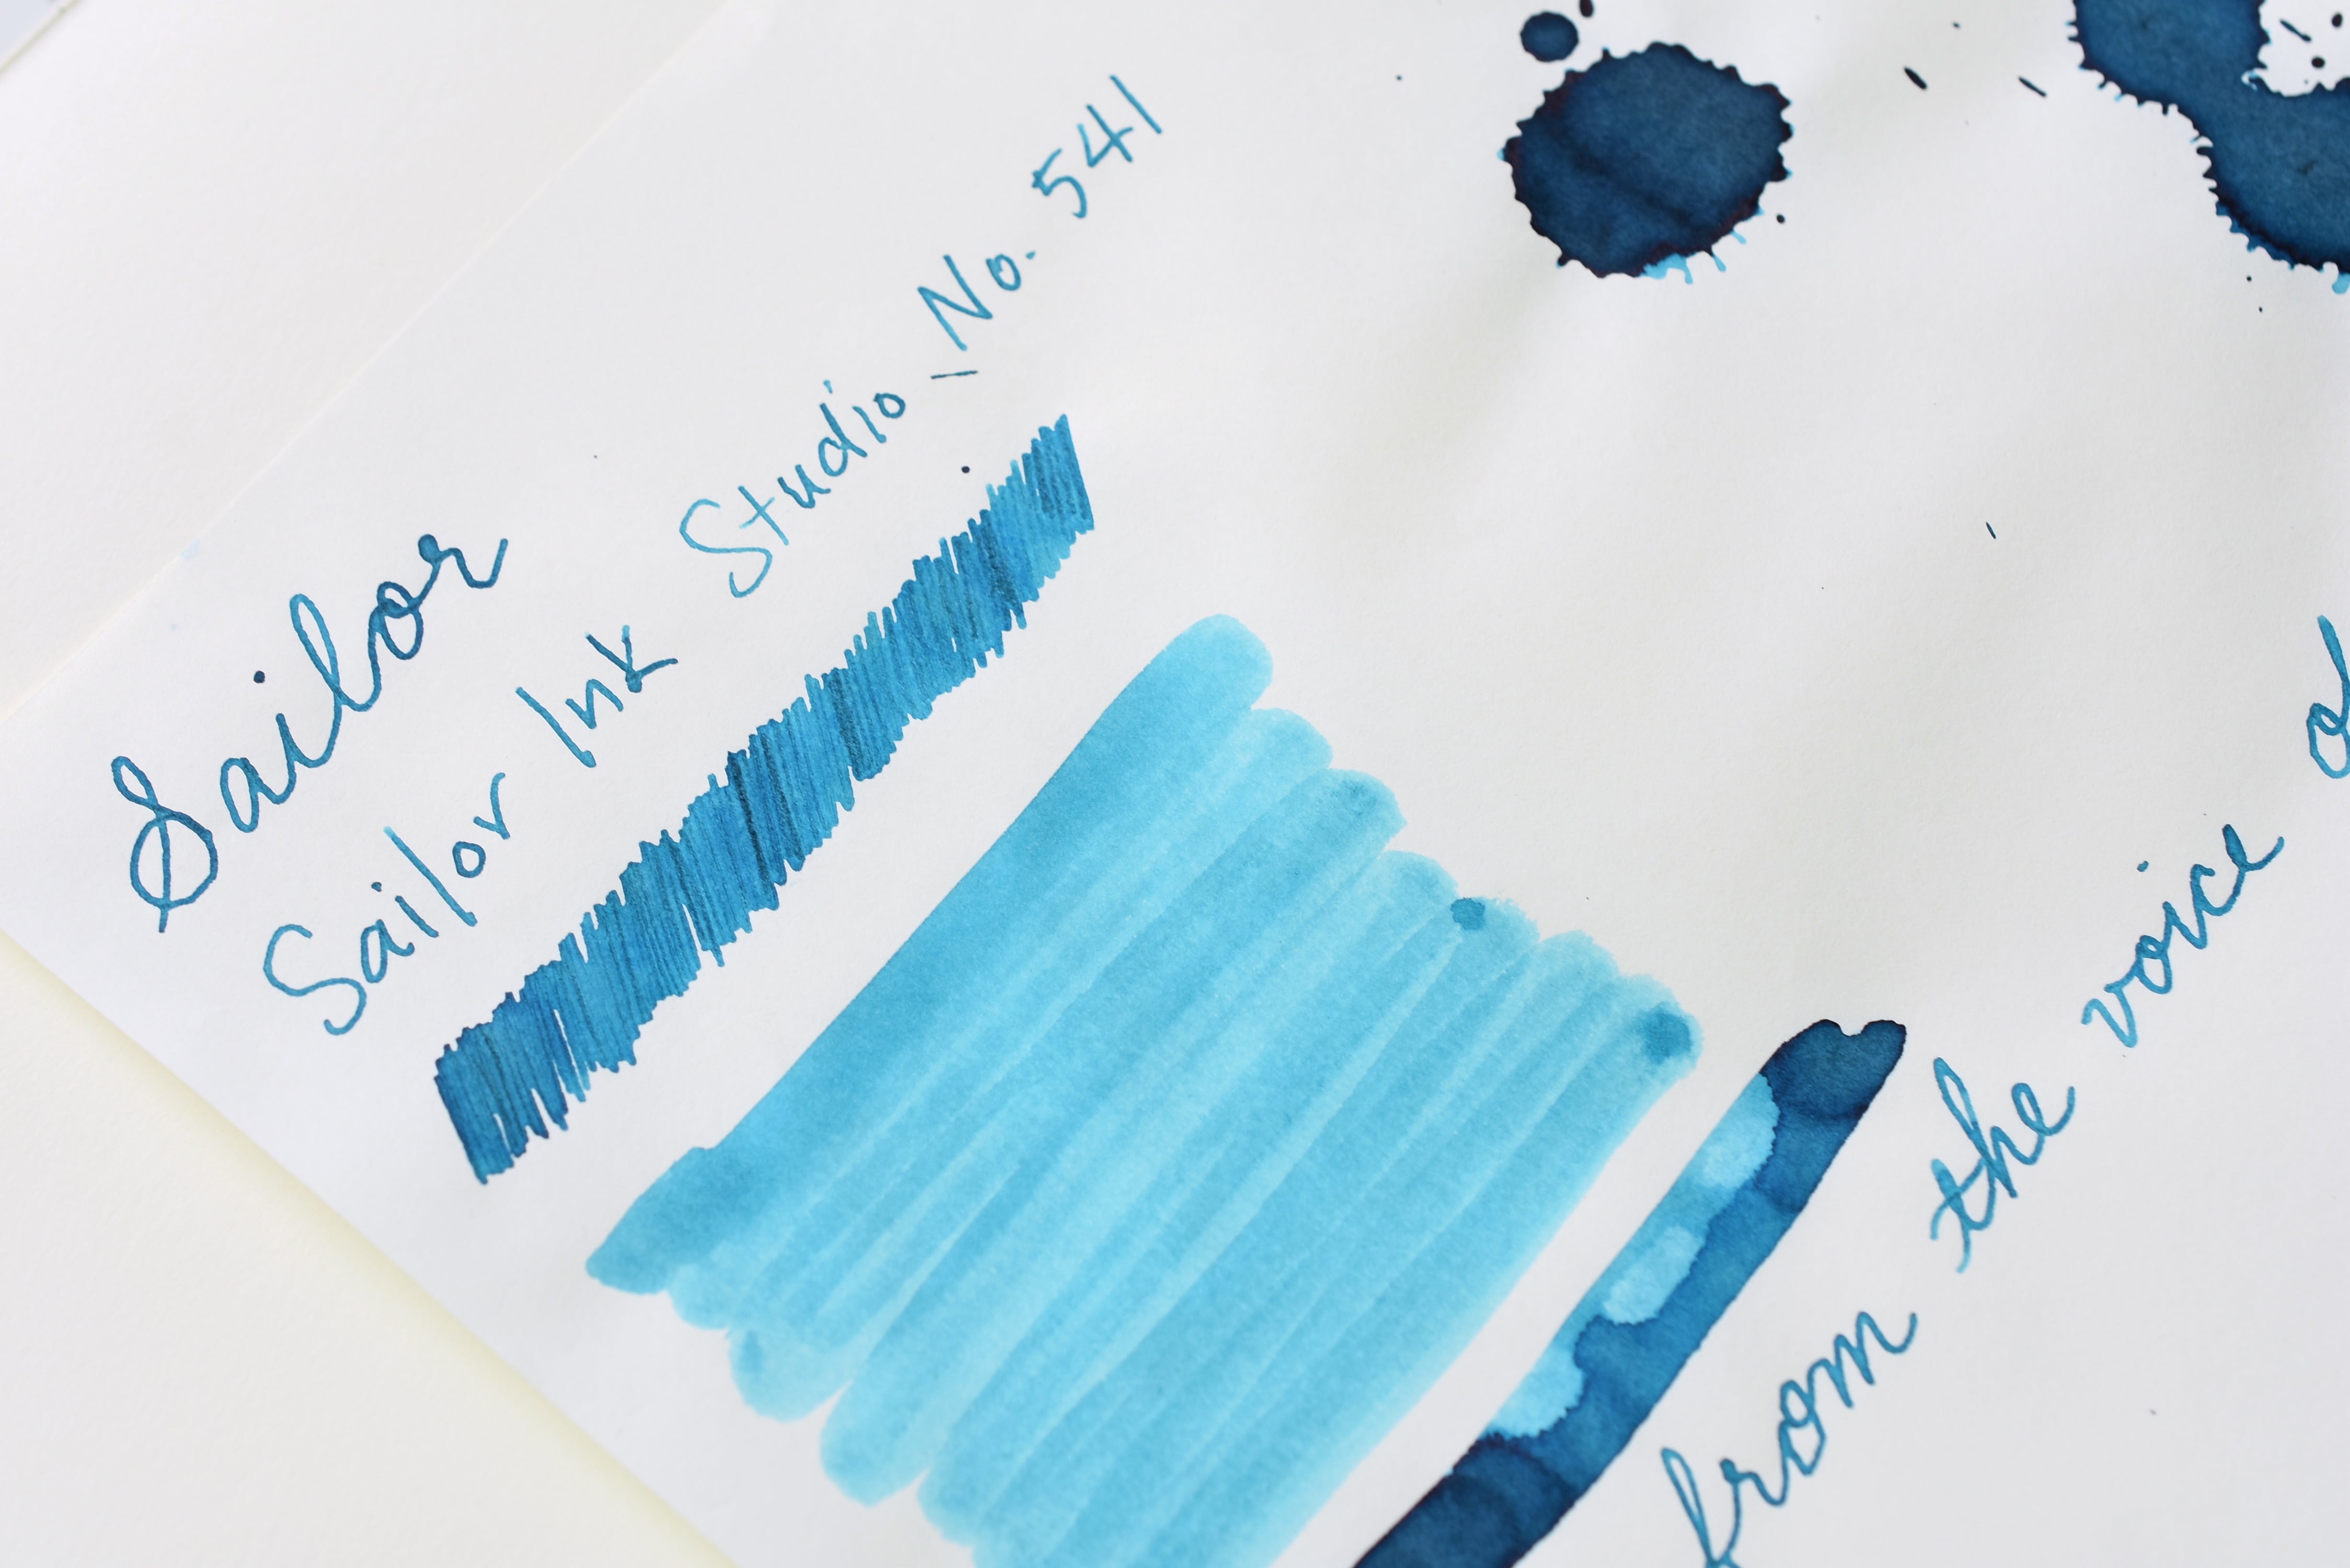 Sailor
Sailor Ink Studio - No. 541
from the voice